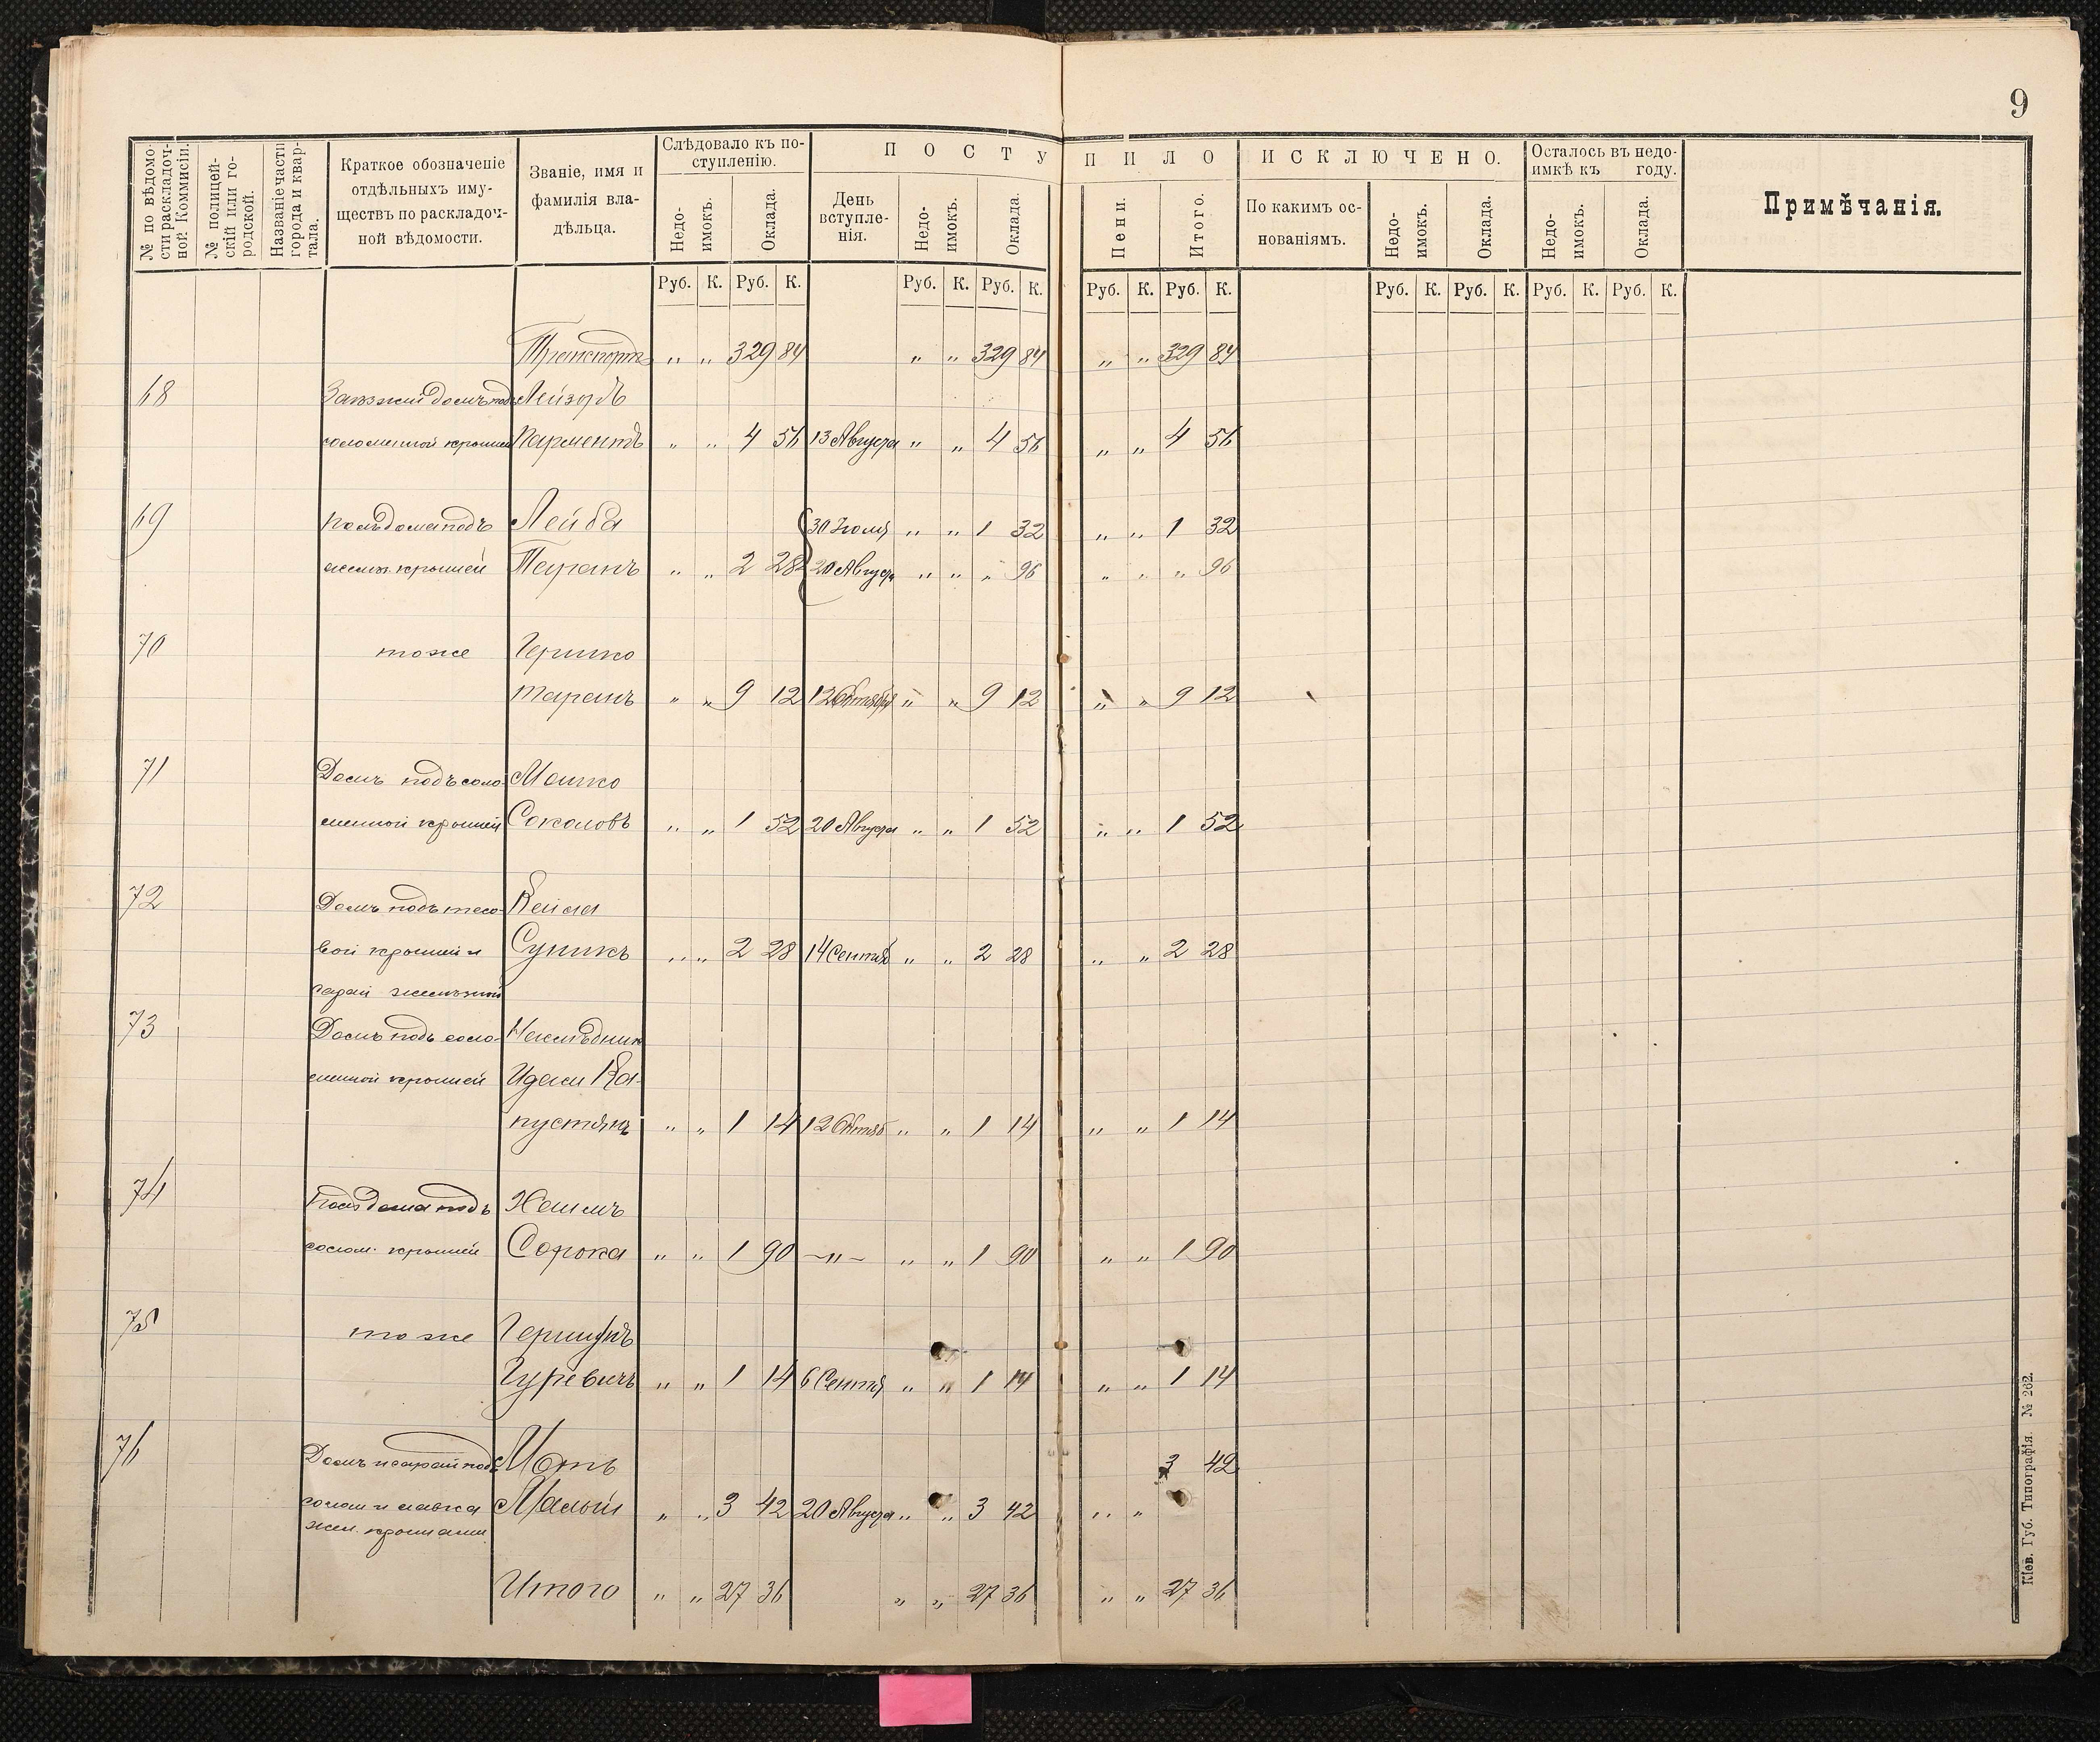 9
№ по вѣдомости раскладочной Коммисіи.
№ полицейскій или городской.
Названіе части города и квартала.
Краткое обозначеніе отдѣльныхъ имуществъ по раскладочной вѣдомости.
Званіе, имя и фамилія владѣльца.
Слѣдовало къ поступленію.
ПОСТУПИЛО
ИСКЛЮЧЕНО.
Осталось въ недоимкѣ къ году.
Примѣчанія.
Недоимокъ. Оклада. День вступленія. Недоимокъ. Оклада. Пени. Итого. По какимъ основаніямъ. Недоимокъ. Оклада. Недоимокъ. Оклада.
Руб. К. Руб. К. Руб. К. Руб. К. Руб. К. Руб. К. Руб. К. Руб. К. Руб. К. Руб. К.
Транспортъ „ „ 329 84 „ „ 329 84 „ „ 329 84
68 Заѣзжий домъ подъ Лейзоръ
соломенной крышей „ „ 4 56 13 Августа „ „ 4 56 „ „ 4 56
69 Полъ дома подъ Лейба 30 Іюля „ „ 1 32 „ „ 1 32
крышей Таранъ „ „ 2 28 20 Августа „ „ „ 96 „ „ „ 96
70 тоже Гершко
Таранъ „ „ 9 12 12 Октября „ „ 9 12 „ „ 9 12
71 Домъ подъ соло- Мошко
менной крышей Соколовъ „ „ 1 52 20 Августа „ „ 1 52 „ „ 1 52
72 Домъ подъ тесо- Кейла
вой крышей и Супикъ „ „ 2 28 14 Сентяб „ „ 2 28 „ „ 2 28
сарай
73 Домъ подъ соло- Наслѣдник
менной крышей Ка-
пустянъ „ „ 1 14 12 Октяб „ „ 1 14 „ „ 1 14
74 Полъ дома подъ Хаимъ
солом. крышей Сорока „ „ 1 90 —„— „ „ 1 90 „ „ 1 90
75 тоже Гершунъ
Гуревичъ „ „ 1 14 6 Сентя „ „ 1 14 „ „ 1 14
76 Домъ и сарай подъ Мотъ 3 42
солом и лавка Малый „ „ 3 42 20 Августа „ „ 3 42 „ „
жел. крышами
Итого „ „ 27 36 „ „ 27 36 „ „ 27 36
Кіев. Губ. Типографія. № 262.